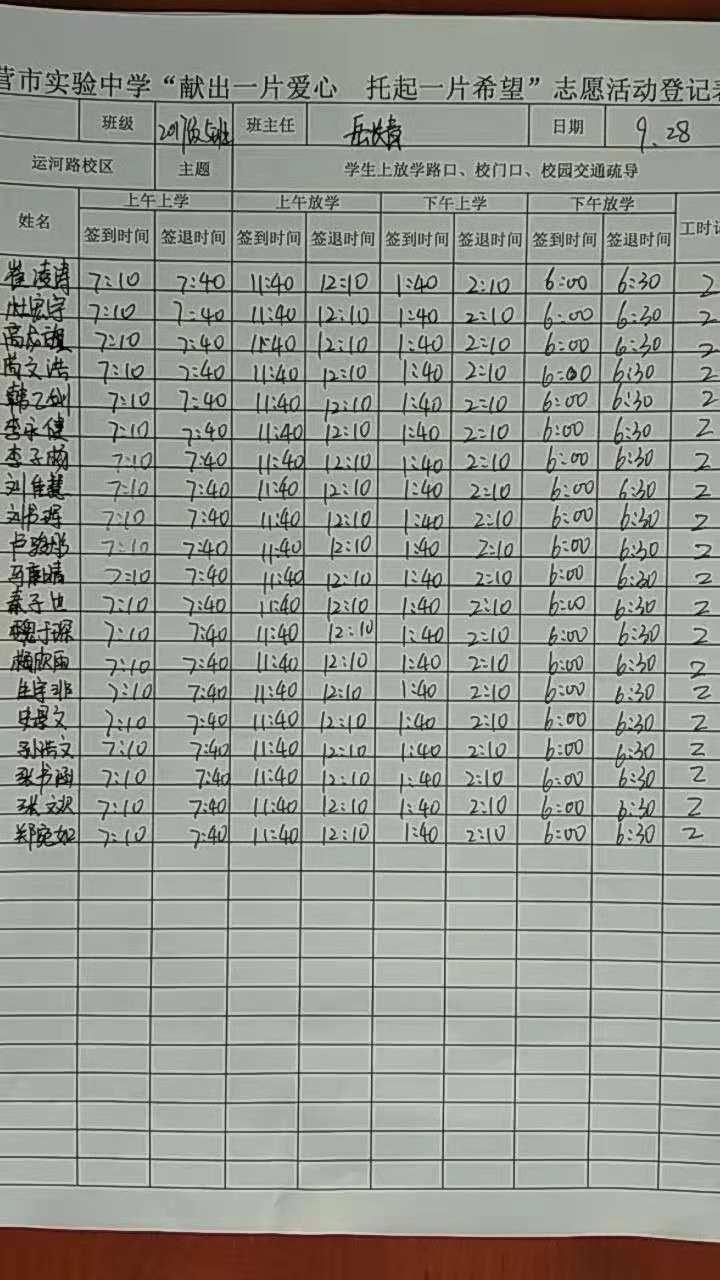 营市实验中学“献出一片爱心 托起一片希望”志愿活动登记表
班级 2017级5班 班主任 岳长青 日期 9.28
运河路校区 主题 学生上放学路口、校门口、校园交通疏导
姓名 上午上学 上午放学 下午上学 下午放学 工时
签到时间 签退时间 签到时间 签退时间 签到时间 签退时间 签到时间 签退时间
崔凌涛 7:10 7:40 11:40 12:10 1:40 2:10 6:00 6:30 2
杜宏宇 7:10 7:40 11:40 12:10 1:40 2:10 6:00 6:30 2
高 7:10 7:40 11:40 12:10 1:40 2:10 6:00 6:30 2
苟文浩 7:10 7:40 11:40 12:10 1:40 2:10 6:00 6:30 2
韩乙剑 7:10 7:40 11:40 12:10 1:40 2:10 6:00 6:30 2
李永健 7:10 7:40 11:40 12:10 1:40 2:10 6:00 6:30 2
李子畅 7:10 7:40 11:40 12:10 1:40 2:10 6:00 6:30 2
刘佳慧 7:10 7:40 11:40 12:10 1:40 2:10 6:00 6:30 2
刘书 7:10 7:40 11:40 12:10 1:40 2:10 6:00 6:30 2
卢 7:10 7:40 11:40 12:10 1:40 2:10 6:00 6:30 2
马 7:10 7:40 11:40 12:10 1:40 2:10 6:00 6:30 2
秦子 7:10 7:40 11:40 12:10 1:40 2:10 6:00 6:30 2
魏于琛 7:10 7:40 11:40 12:10 1:40 2:10 6:00 6:30 2
欣雨 7:10 7:40 11:40 12:10 1:40 2:10 6:00 6:30 2
宇非 7:10 7:40 11:40 12:10 1:40 2:10 6:00 6:30 2
史文 7:10 7:40 11:40 12:10 1:40 2:10 6:00 6:30 2
孙浩文 7:10 7:40 11:40 12:10 1:40 2:10 6:00 6:30 2
张书涵 7:10 7:40 11:40 12:10 1:40 2:10 6:00 6:30 2
张文欢 7:10 7:40 11:40 12:10 1:40 2:10 6:00 6:30 2
郑宛如 7:10 7:40 11:40 12:10 1:40 2:10 6:00 6:30 2